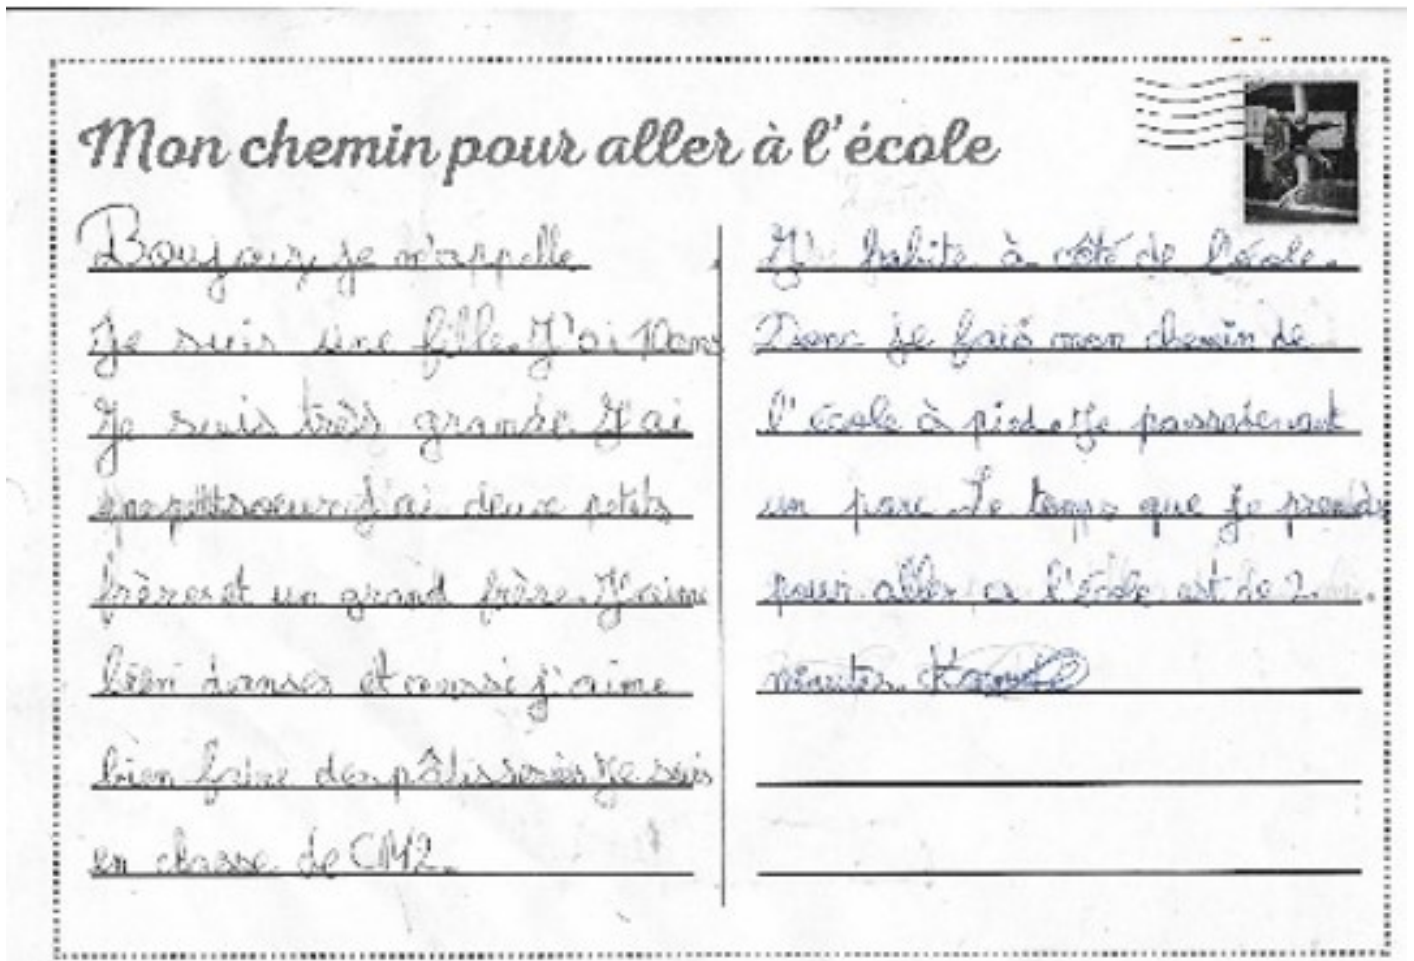 Mon chemin pour aller à l'école
Boujour, je m'appelle
Je suis une fille. J'ai 10ans
Je suis très grande. J'ai
une petitsoeur. J'ai deux petits
frères et un grand frère. J'aime
bien danser et aussi j'aime
bien faire des pâtisseries. Je suis
en classe de CM2.
J' habite à côté de l'école.
Donc je fais mon chemin de
l'école à pied. Je
un parc. Le temps que je prends
pour aller a l'école est de 2
minutes.